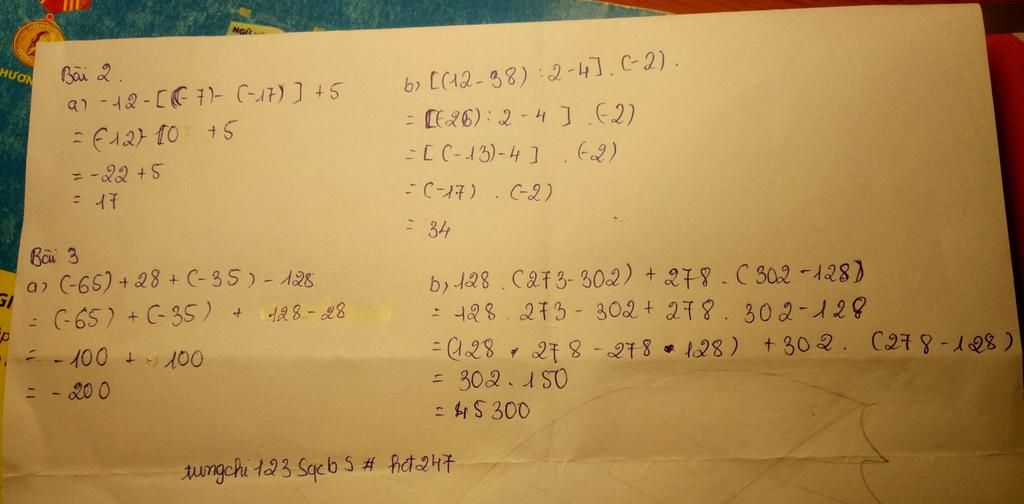 HƯƠN
NGỮ
Bài 2.
a) -12-[(-7)-(-17)]+5
=(-12)-10 +5
= -22+5
= 17
b) [(12-38):2-4].(-2).
= [(-26):2-4].(-2)
= [(-13)-4].(-2)
= (-17).(-2)
= 34
Bài 3
a) (-65)+28+(-35)-128
= (-65)+(-35)+ 128-28
= -100 + 100
= -200
b) 128.(273-302)+278.(302-128)
= 128.273-302+278.302-128
=(128.278-278.128)+302.(278-128)
= 302.150
= 45300
tungchi123sqcbs# hct247